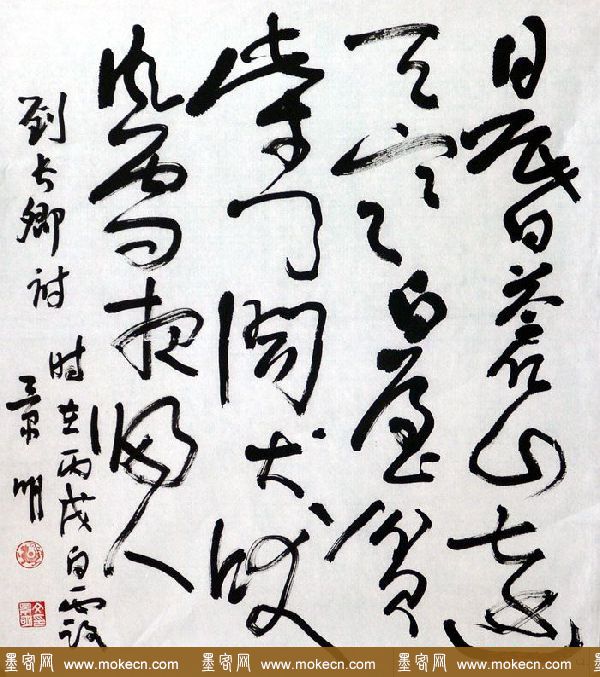 日暮蒼山遠
天寒白屋貧
柴門聞犬吠
風雪夜歸人
劉長卿詩
時在丙戌白露
景明
墨客网 www.mokecn.com 墨客网 www.mokecn.com 墨客网 www.mokecn.com